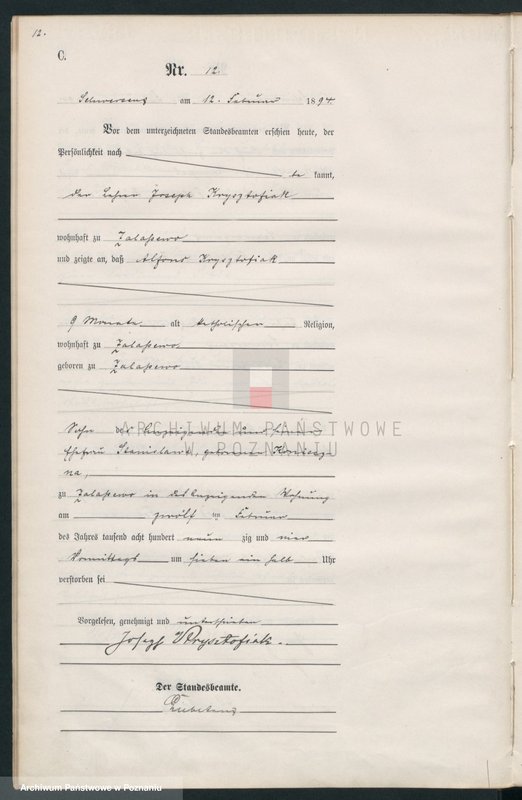 12.
C.
Nr. 12.
Schwersenz am 12. Februar 1894
Vor dem unterzeichneten Standesbeamten erschien heute, der
Persönlichkeit nach
be kannt,
der Lehrer Joseph Krysztofiak
wohnhaft zu Zalasewo
und zeigte an, daß Alfons Krysztofiak
9 Monate alt katholischer Religion,
wohnhaft zu Zalasewo
geboren zu Zalasewo
Sohn des Anzeigenden und seiner
Ehefrau Stanislawa, geborene
na,
zu Zalasewo in des Anzeigenden Wohnung
am zwölf ten Februar
des Jahres tausend acht hundert neun zig und vier
Vormittags um sieben ein halb Uhr
verstorben sei
Vorgelesen, genehmigt und unterschrieben
Joseph Krysztofiak.
Der Standesbeamte.
ARCHIWUM PAŃSTWOWE
W POZNANIU
Archiwum Państwowe w Poznaniu